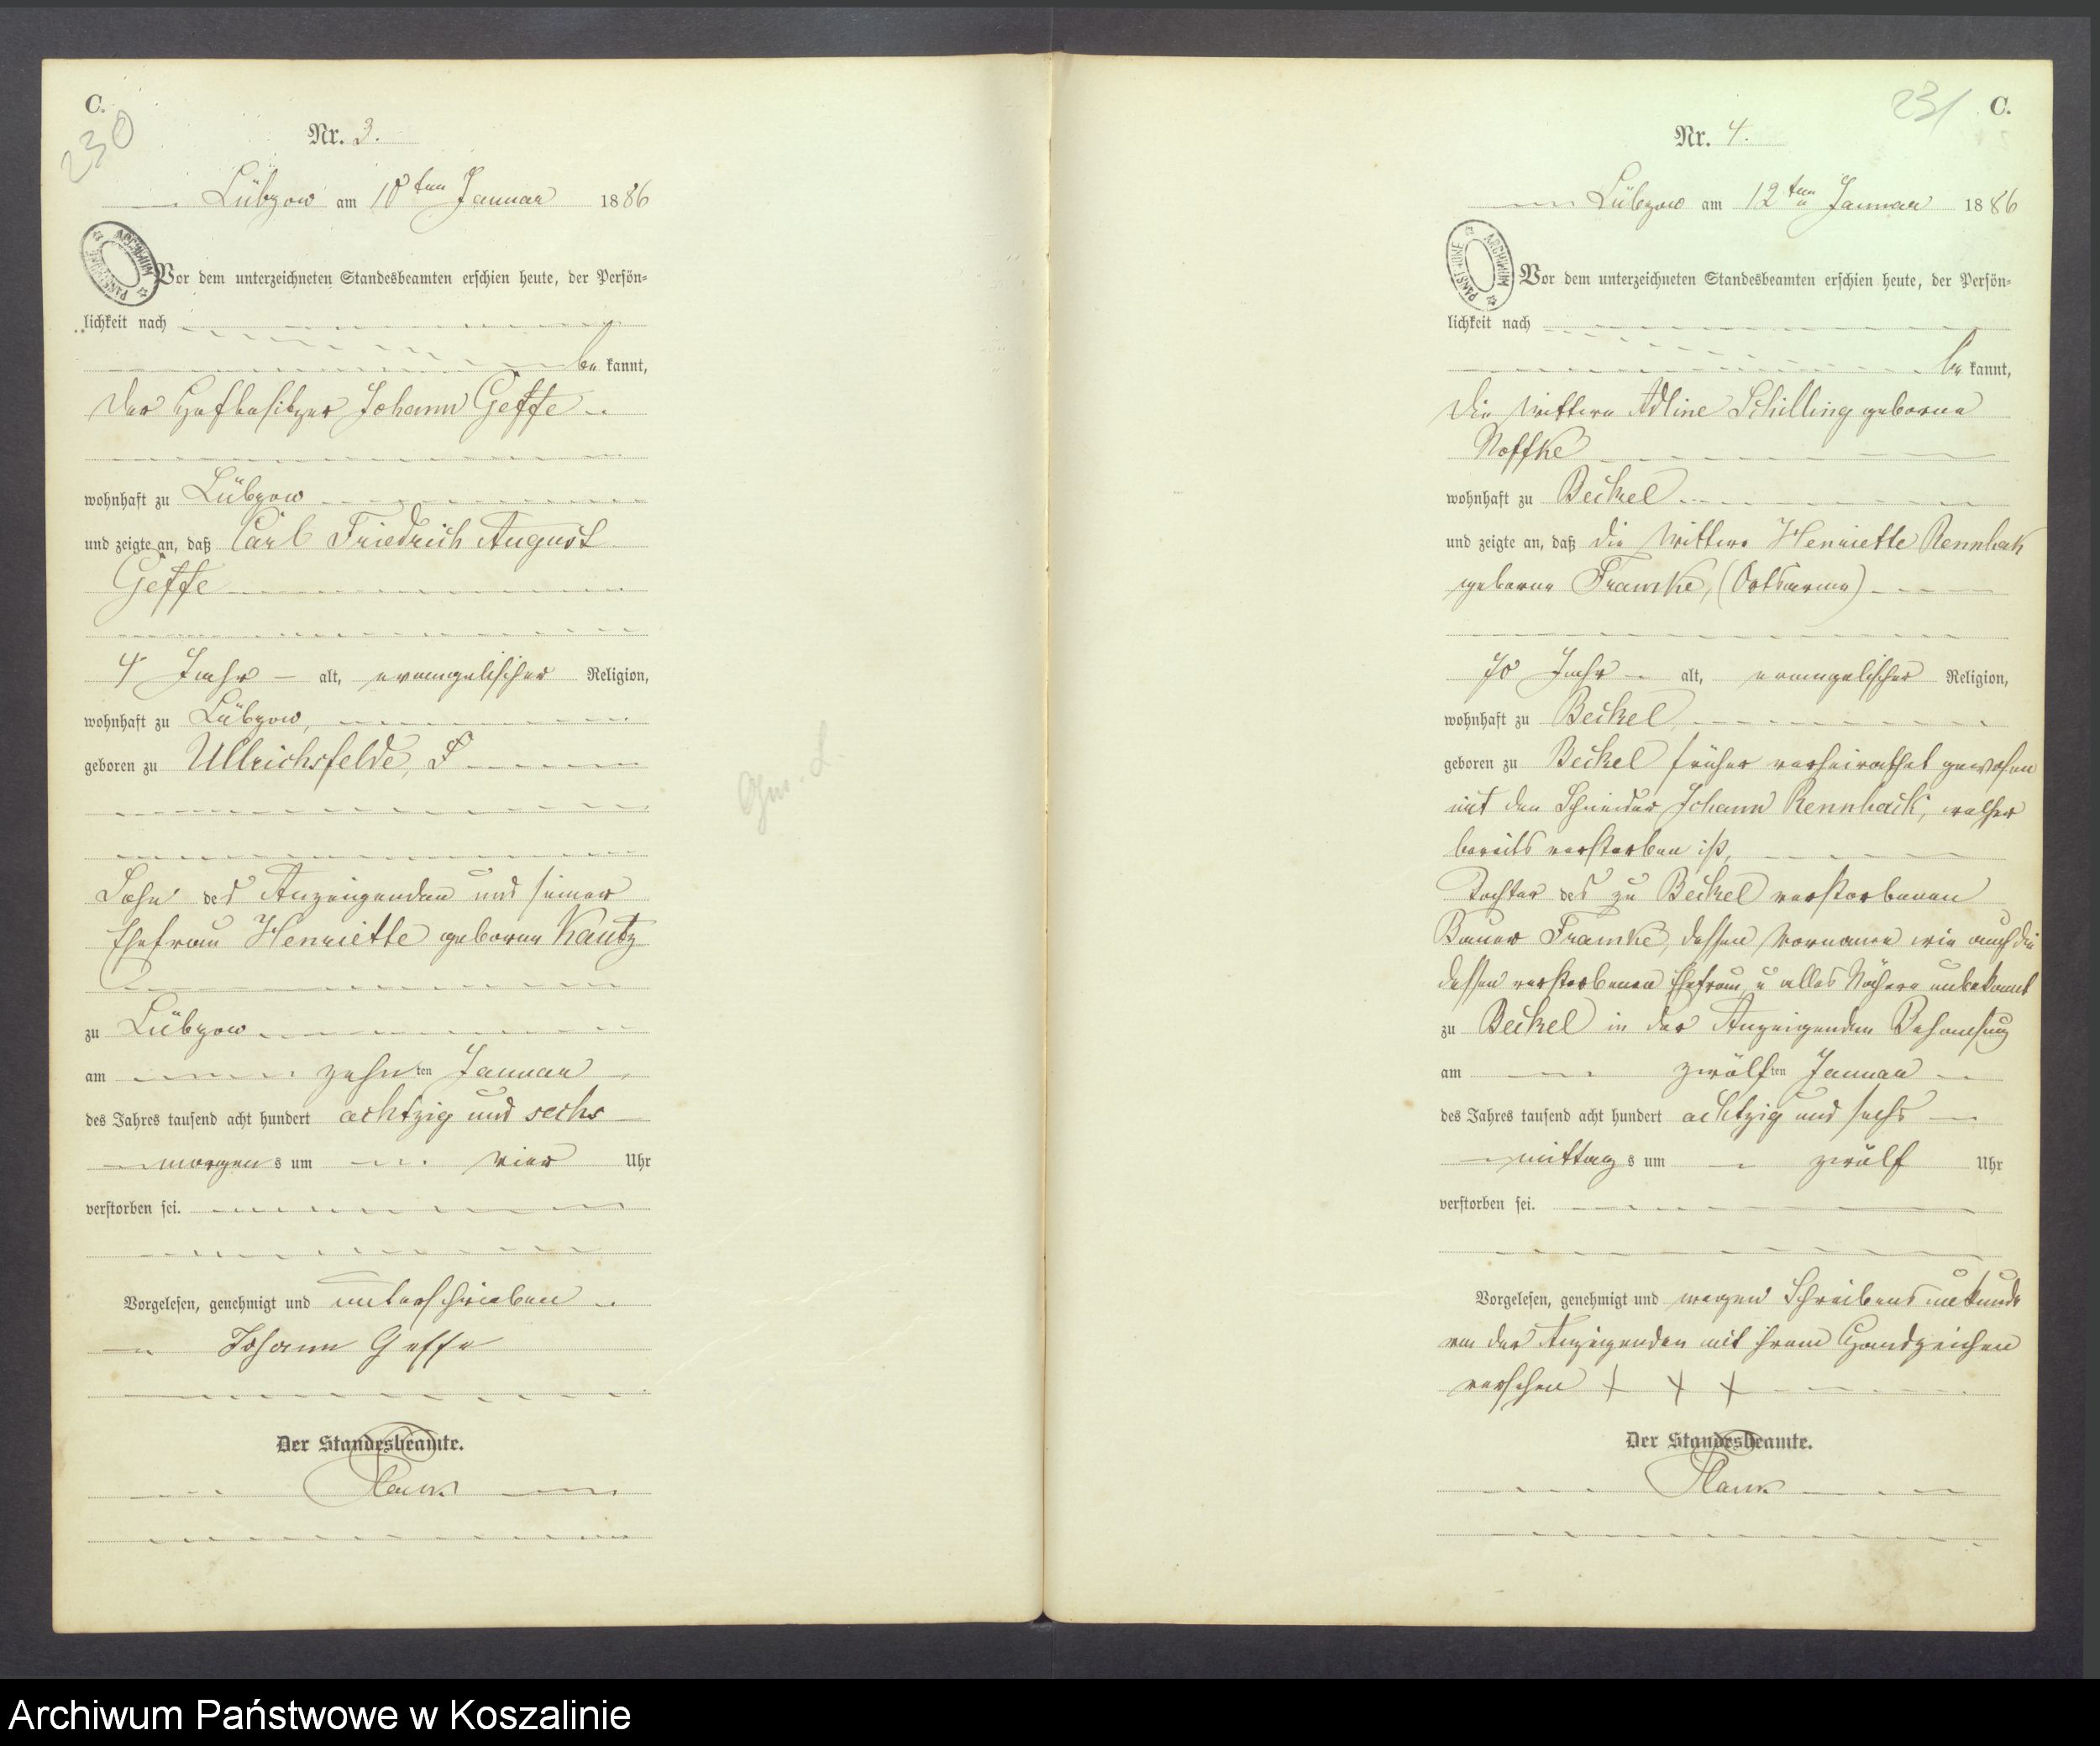 C.
230
Nr. 3.
Lübzow am 10ten Januar 1886
ARCHIWUM PAŃSTWOWE
Vor dem unterzeichneten Standesbeamten erschien heute, der Persön-
lichkeit nach
be kannt,
der Hofbesitzer Johann Geffe
wohnhaft zu Lübzow
und zeigte an, daß Carl Friedrich August
Geffe
4 Jahr alt, evangelischer Religion,
wohnhaft zu Lübzow,
geboren zu Ullrichsfelde,
Sohn des Anzeigenden und seiner
Ehefrau Henriette geborne Kautz
zu Lübzow
am zehn ten Januar
des Jahres tausend acht hundert achtzig und sechs
morgen s um vier Uhr
verstorben sei.
Vorgelesen, genehmigt und unterschrieben
Johann Geffe
Der Standesbeamte.
231 C.
Nr. 4.
Lübzow am 12ten Januar 1886
ARCHIWUM PAŃSTWOWE
Vor dem unterzeichneten Standesbeamten erschien heute, der Persön-
lichkeit nach
be kannt,
die Wittwe Adline Schilling geborne
Noffke
wohnhaft zu Beckel
und zeigte an, daß die Wittwe Henriette Rennhak
geborne Framke, (Ortsarme)
70 Jahr alt, evangelischer Religion,
wohnhaft zu Beckel,
geboren zu Beckel früher verheirathet gewesen
mit den Schneider Johann Rennhack, welcher
bereits verstorben ist,
Tochter des zu Beckel verstorbenen
Bauer Framke, dessen Vorname wie auch die
dessen verstorbenen Ehefrau, u alles Nähere unbekannt
zu Beckel in der Anzeigenden Behausung
am zwölf ten Januar
des Jahres tausend acht hundert achtzig und sechs
mittag s um zwölf Uhr
verstorben sei.
Vorgelesen, genehmigt und wegen Schreibens unkunde
von der Anzeigenden mit ihrem Handzeichen
versehen + + +
Der Standesbeamte.
Archiwum Państwowe w Koszalinie